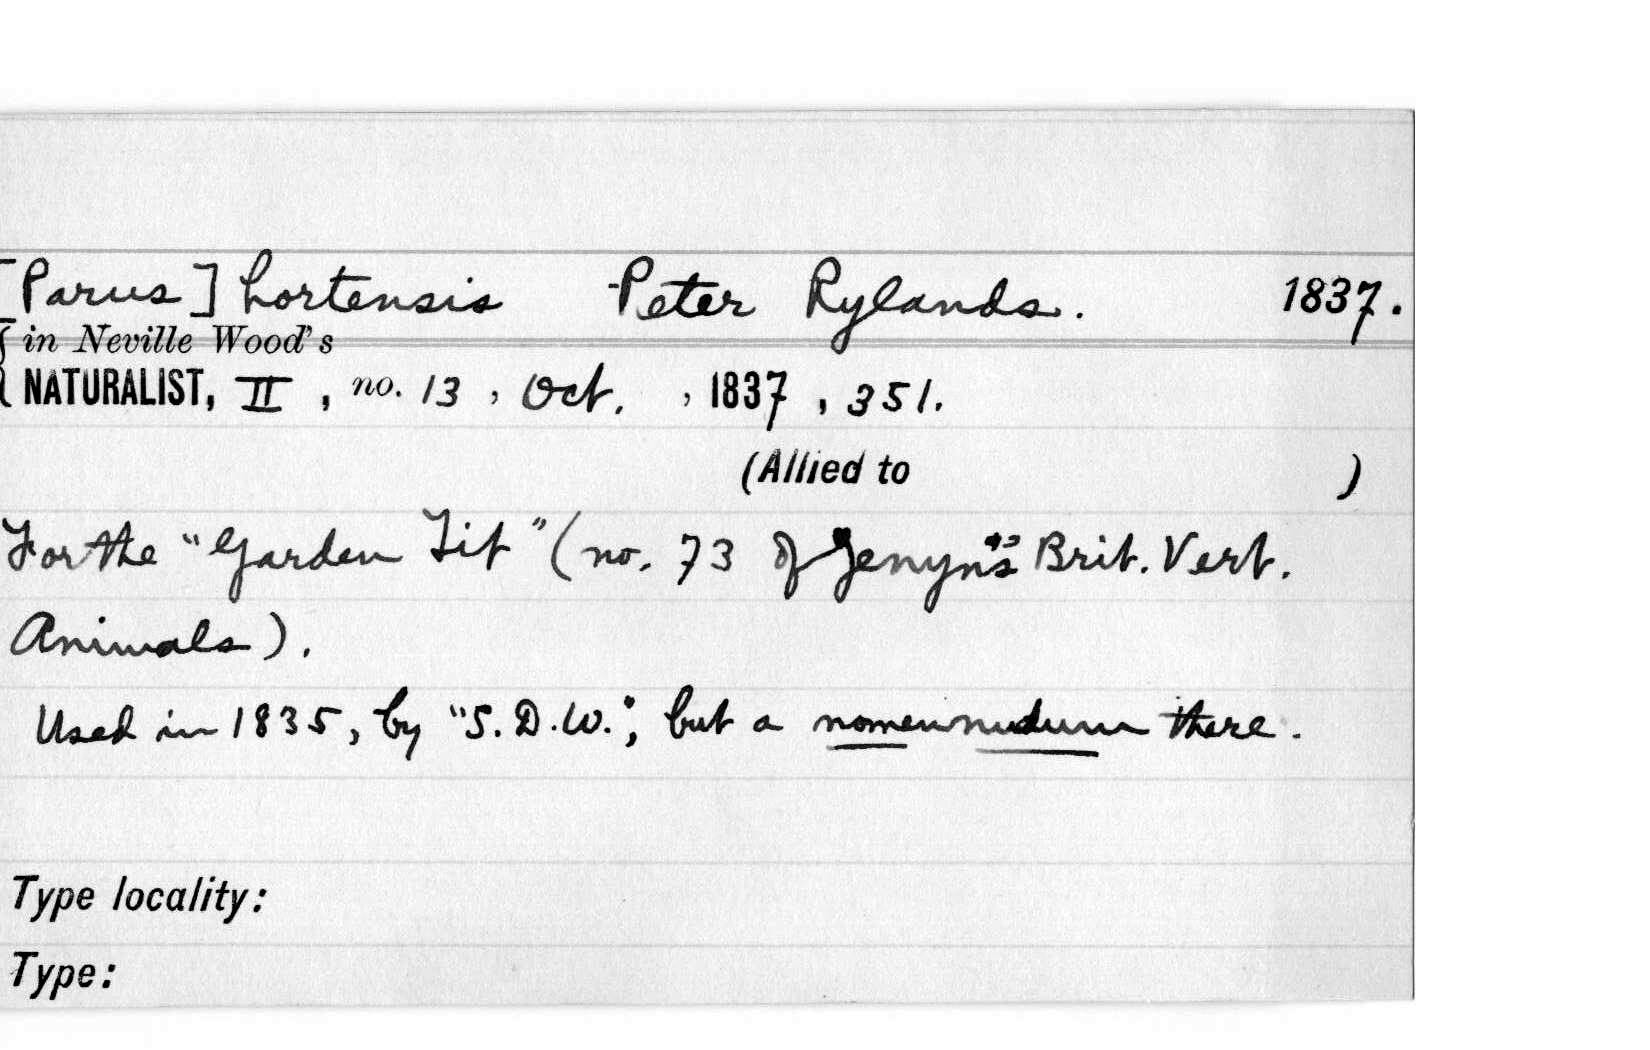 [Parus] hortensis Peter Rylands. 1837.
{ in Neville Wood's
NATURALIST, II, no. 13, Oct., 1837, 351.
(Allied to )
For the "Garden Tit" (no. 73 of Jenyns's Brit. Vert.
Animals).
Used in 1835, by "S.D.W.", but a nomen nudum there.
Type locality:
Type: